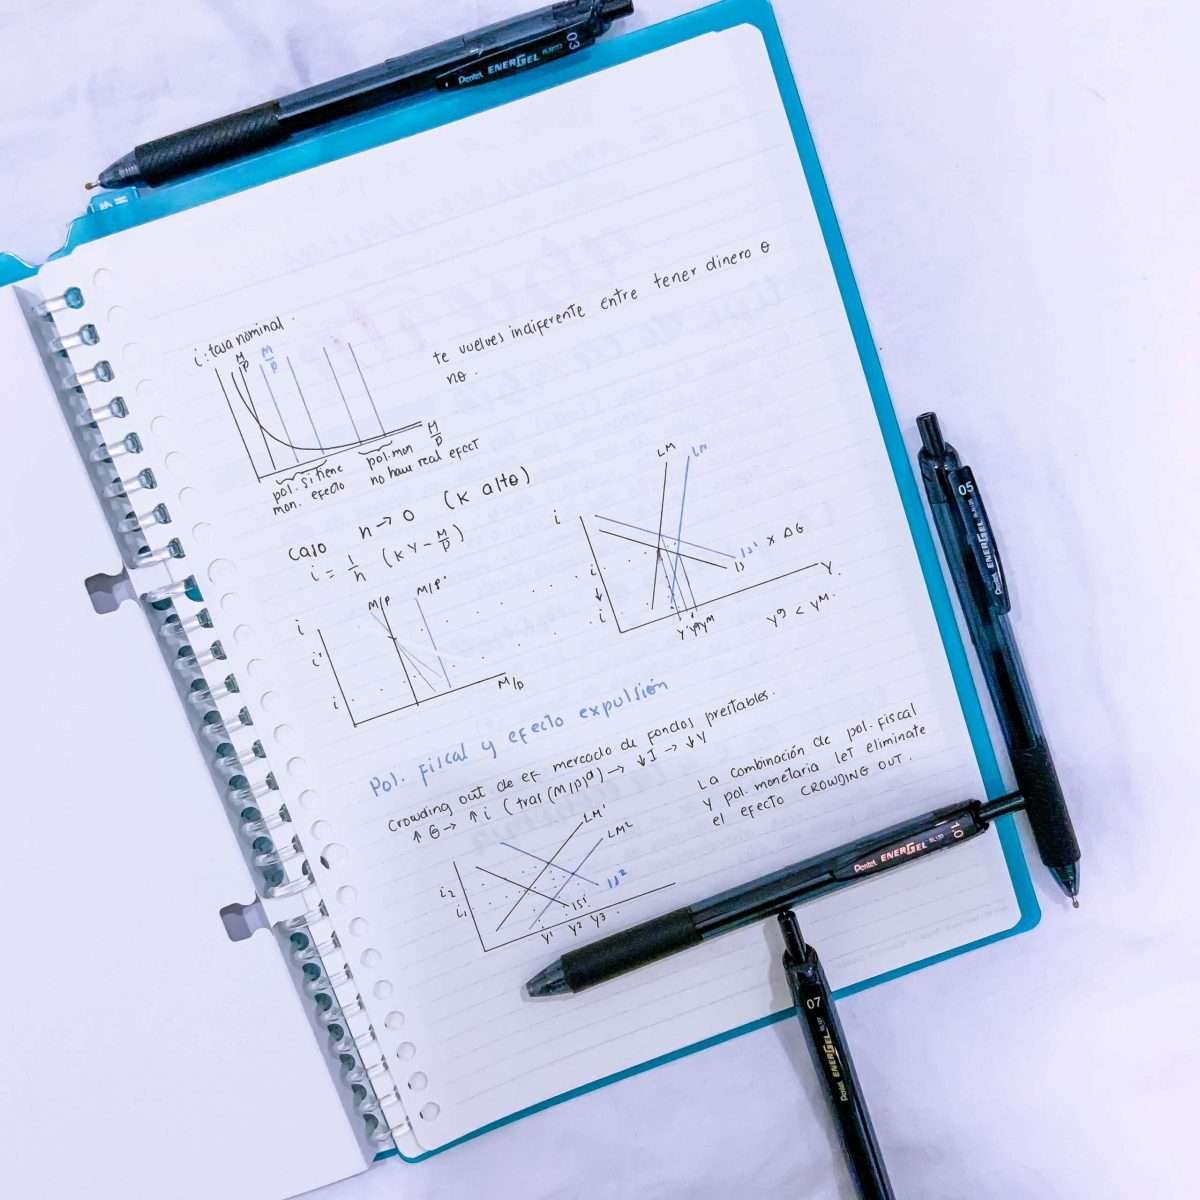 Pentel ENERGEL 03
i: tasa nominal
M/P
M/P
te vuelves indiferente entre tener dinero o
no.
M/P
pol. si tiene
mon. efecto
pol. mon
no have real efect
caso h → 0 (K alto)
i = 1/h (KY - M/P)
LM
LM
i
IS' x ΔG
IS
i
↓
i
Y
Y' Yᵍ Yᴹ
Yᵍ < Yᴹ.
M/P
M/P'
i
i'
i
M/P
Pol. fiscal y efecto expulsión
Crowding out de ef mercado de fondos prestables.
↑ G → ↑ i (tras (M/P)ᵈ) → ↓ I → ↓ Y
La combinación de pol. fiscal
y pol. monetaria let eliminate
el efecto CROWDING OUT.
LM'
LM²
i₂
i₁
IS²
IS'
Y' Y² Y₃
05 ENERGEL
Pentel ENERGEL 1.0
07 Pentel ENERGEL